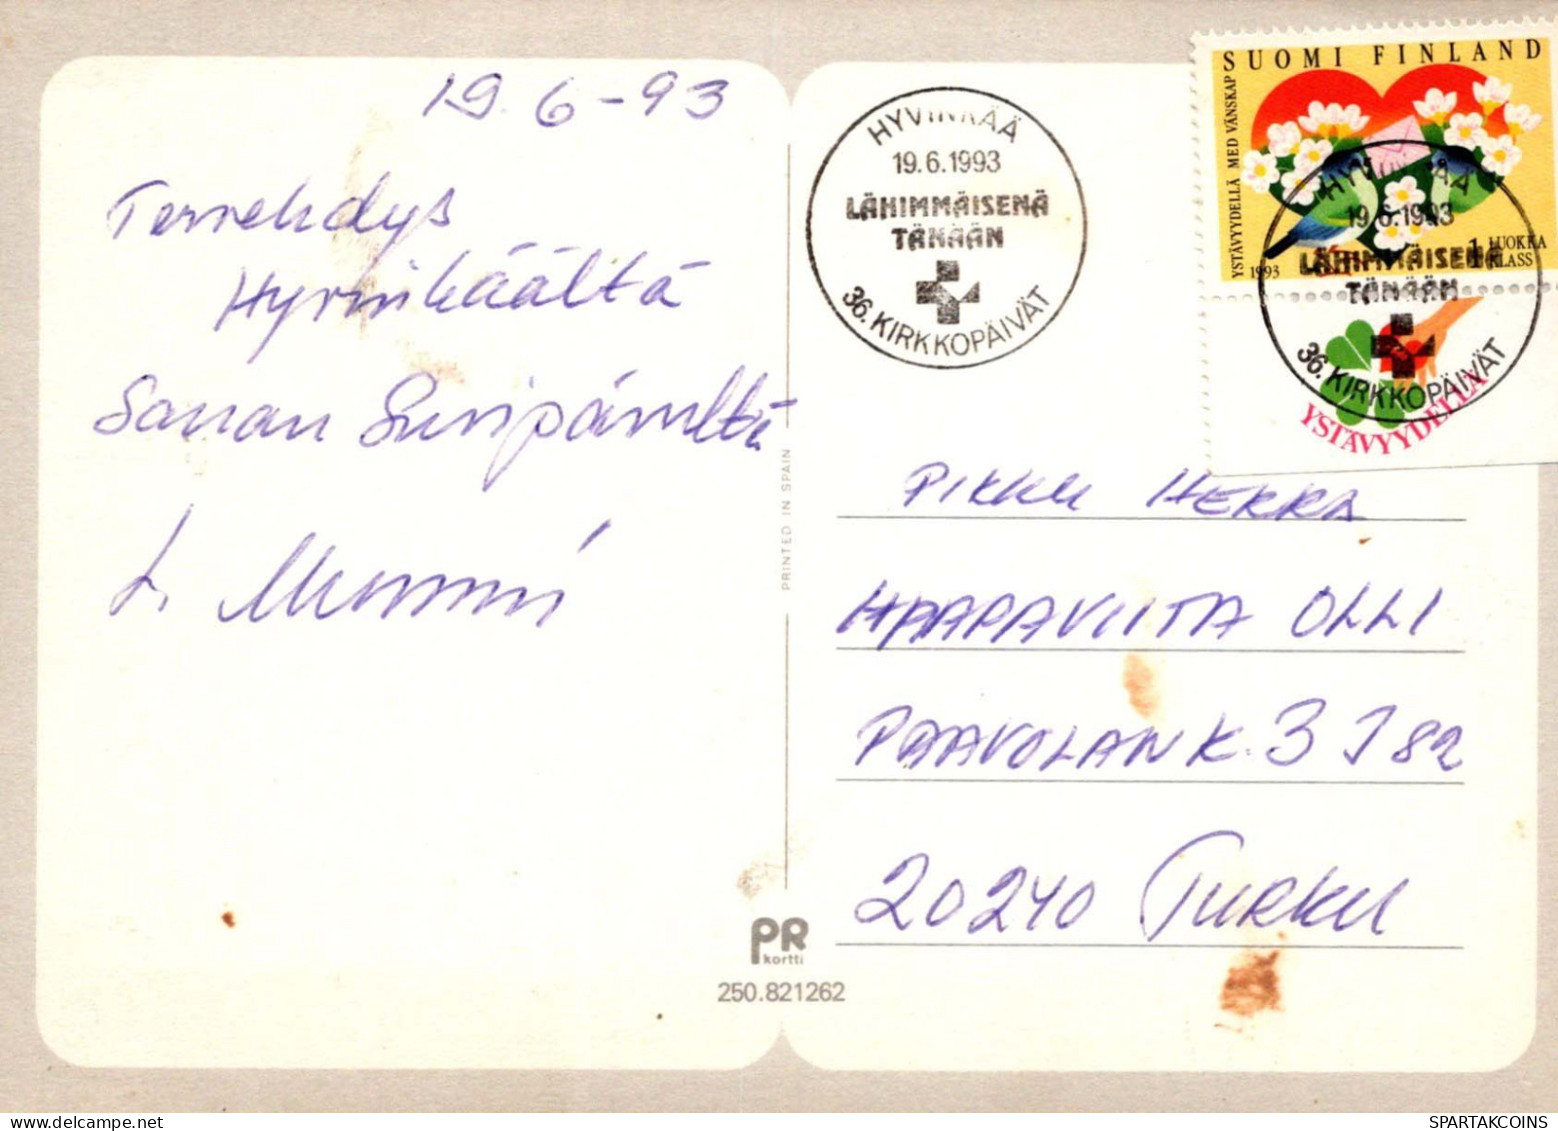 19.6-93
Tervehdys
Hyvinkäältä
Sanan Suvipäiviltä
L. Mummi
HYVINKÄÄ
19.6.1993
LÄHIMMÄISENÄ
TÄNÄÄN
36. KIRKKOPÄIVÄT
SUOMI FINLAND
YSTÄVYYDELLÄ MED VÄNSKAP
1993
1 LUOKKA
KLASS
HYVINKÄÄ
19.6.1993
LÄHIMMÄISENÄ
TÄNÄÄN
36. KIRKKOPÄIVÄT
YSTÄVYYDELLÄ
PRINTED IN SPAIN
PIKKU HERRA
HAAPAVIITA OLLI
PAAVOLANK. 3 J 82
20240 TURKU
PR
kortti
250.821262
SPARTAKCOINS.COM